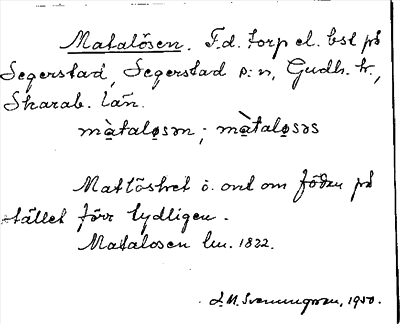 Matalösen. F.d. torp el. bst på
Segerstad, Segerstad s:n, Gudh. hr.,
Skarab. län.
màtaløsən ; màtaløsəs
Matlöshet o. ont om födan på
stället förr tydligen.
Matalosen hu. 1822.
S. M. Svenungsson, 1950.